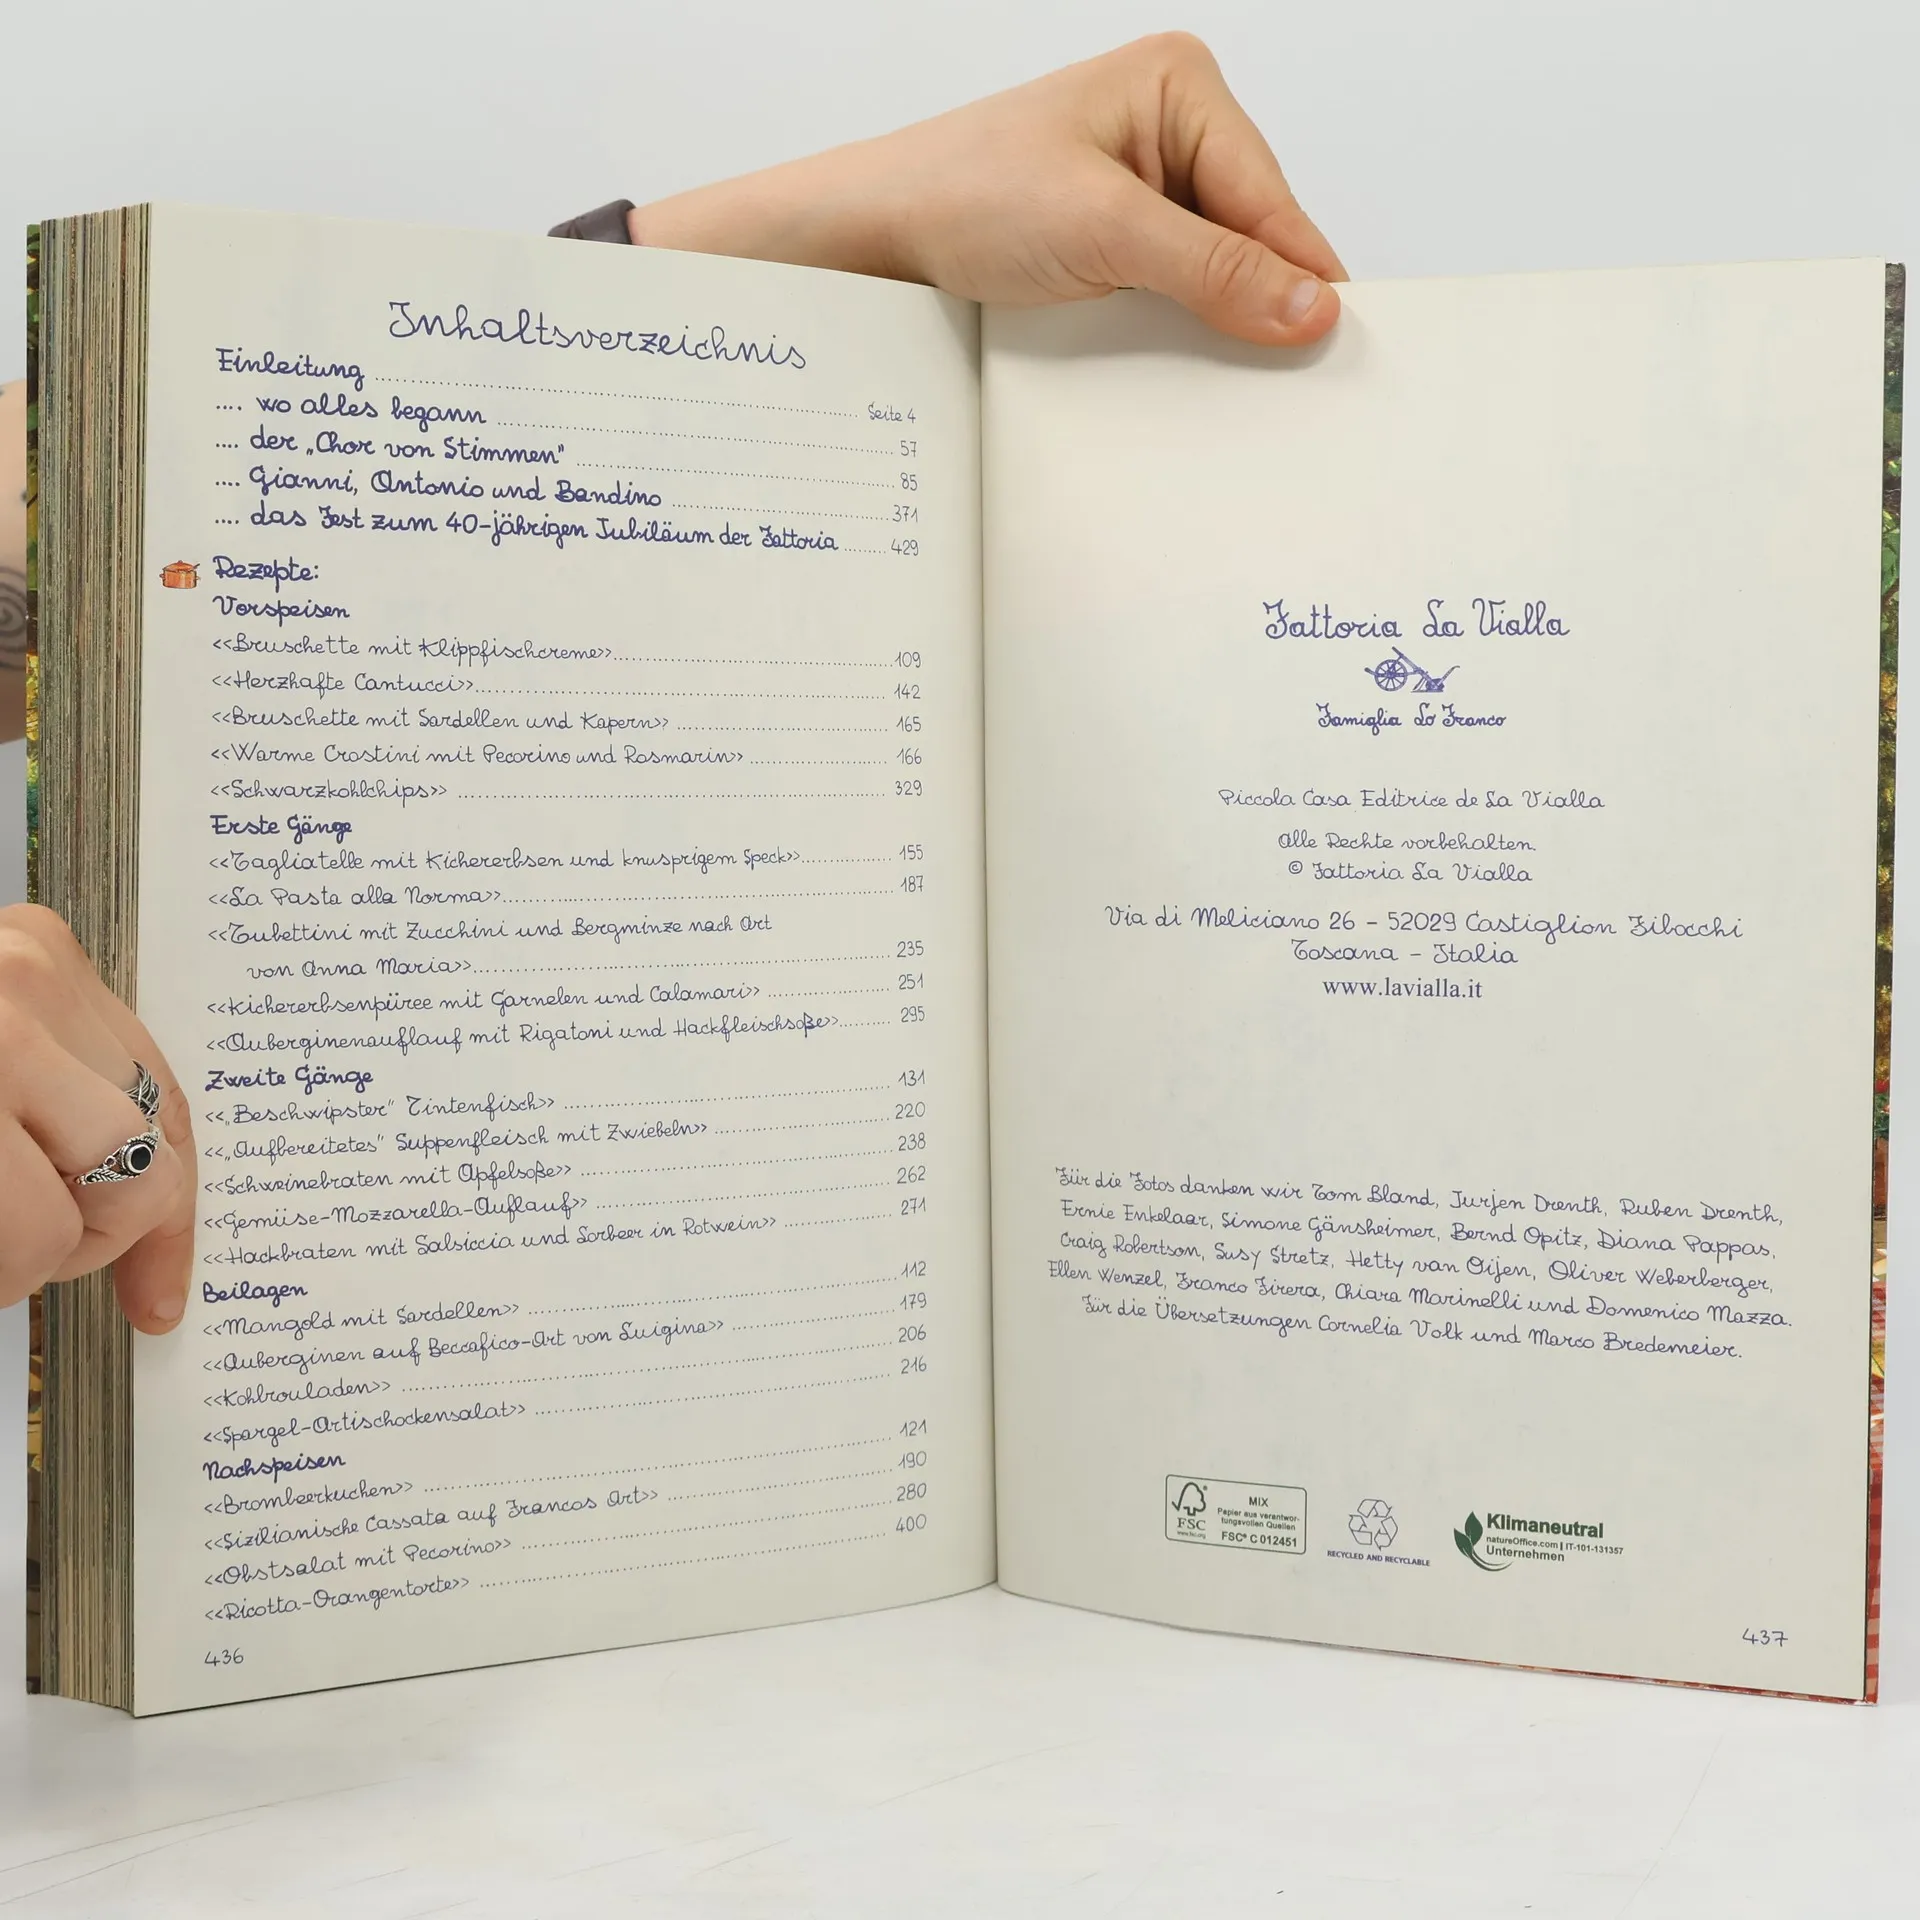 Inhaltsverzeichnis
Einleitung ........ Seite 4
.... wo alles begann ........ 57
.... der „Chor von Stimmen“ ........ 85
.... Gianni, Antonio und Bandino ........ 371
.... das Fest zum 40-jährigen Jubiläum der Fattoria ........ 429
Rezepte:
Vorspeisen
<<Bruschette mit Klippfischcreme>> ........ 109
<<Herzhafte Cantucci>> ........ 142
<<Bruschette mit Sardellen und Kapern>> ........ 165
<<Warme Crostini mit Pecorino und Rosmarin>> ........ 166
<<Schwarzkohlchips>> ........ 329
Erste Gänge
<<Tagliatelle mit Kichererbsen und knusprigem Speck>> ........ 155
<<La Pasta alla Norma>> ........ 187
<<Tubettini mit Zucchini und Bergminze nach Art
von Anna Maria>> ........ 235
<<Kichererbsenpüree mit Garnelen und Calamari>> ........ 251
<<Auberginenauflauf mit Rigatoni und Hackfleischsoße>> ........ 295
Zweite Gänge
<<„Beschwipster“ Tintenfisch>> ........ 131
<<„Aufbereitetes“ Suppenfleisch mit Zwiebeln>> ........ 220
<<Schweinebraten mit Apfelsoße>> ........ 238
<<Gemüse-Mozzarella-Auflauf>> ........ 262
<<Hackbraten mit Salsiccia und Lorbeer in Rotwein>> ........ 271
Beilagen
<<Mangold mit Sardellen>> ........ 112
<<Auberginen auf Beccafico-Art von Luigina>> ........ 179
<<Kohlrouladen>> ........ 206
<<Spargel-Artischockensalat>> ........ 216
Nachspeisen
<<Brombeerkuchen>> ........ 121
<<Sizilianische Cassata auf Francos Art>> ........ 190
<<Obstsalat mit Pecorino>> ........ 280
<<Ricotta-Orangentorte>> ........ 400
436
Fattoria La Vialla
Famiglia Lo Franco
Piccola Casa Editrice de La Vialla
Alle Rechte vorbehalten.
© Fattoria La Vialla
Via di Meliciano 26 - 52029 Castiglion Fibocchi
Toscana - Italia
www.lavialla.it
Für die Fotos danken wir Tom Bland, Jurjen Drenth, Ruben Drenth,
Ernie Enkelaar, Simone Gänsheimer, Bernd Opitz, Diana Pappas,
Craig Robertson, Susy Stretz, Hetty van Oijen, Oliver Weberberger,
Ellen Wenzel, Franco Firera, Chiara Marinelli und Domenico Mazza.
Für die Übersetzungen Cornelia Volk und Marco Bredemeier.
FSC
www.fsc.org
MIX
Papier aus verantwor-
tungsvollen Quellen
FSC® C012451
RECYCLED AND RECYCLABLE
Klimaneutral
natureOffice.com | IT-101-131357
Unternehmen
437